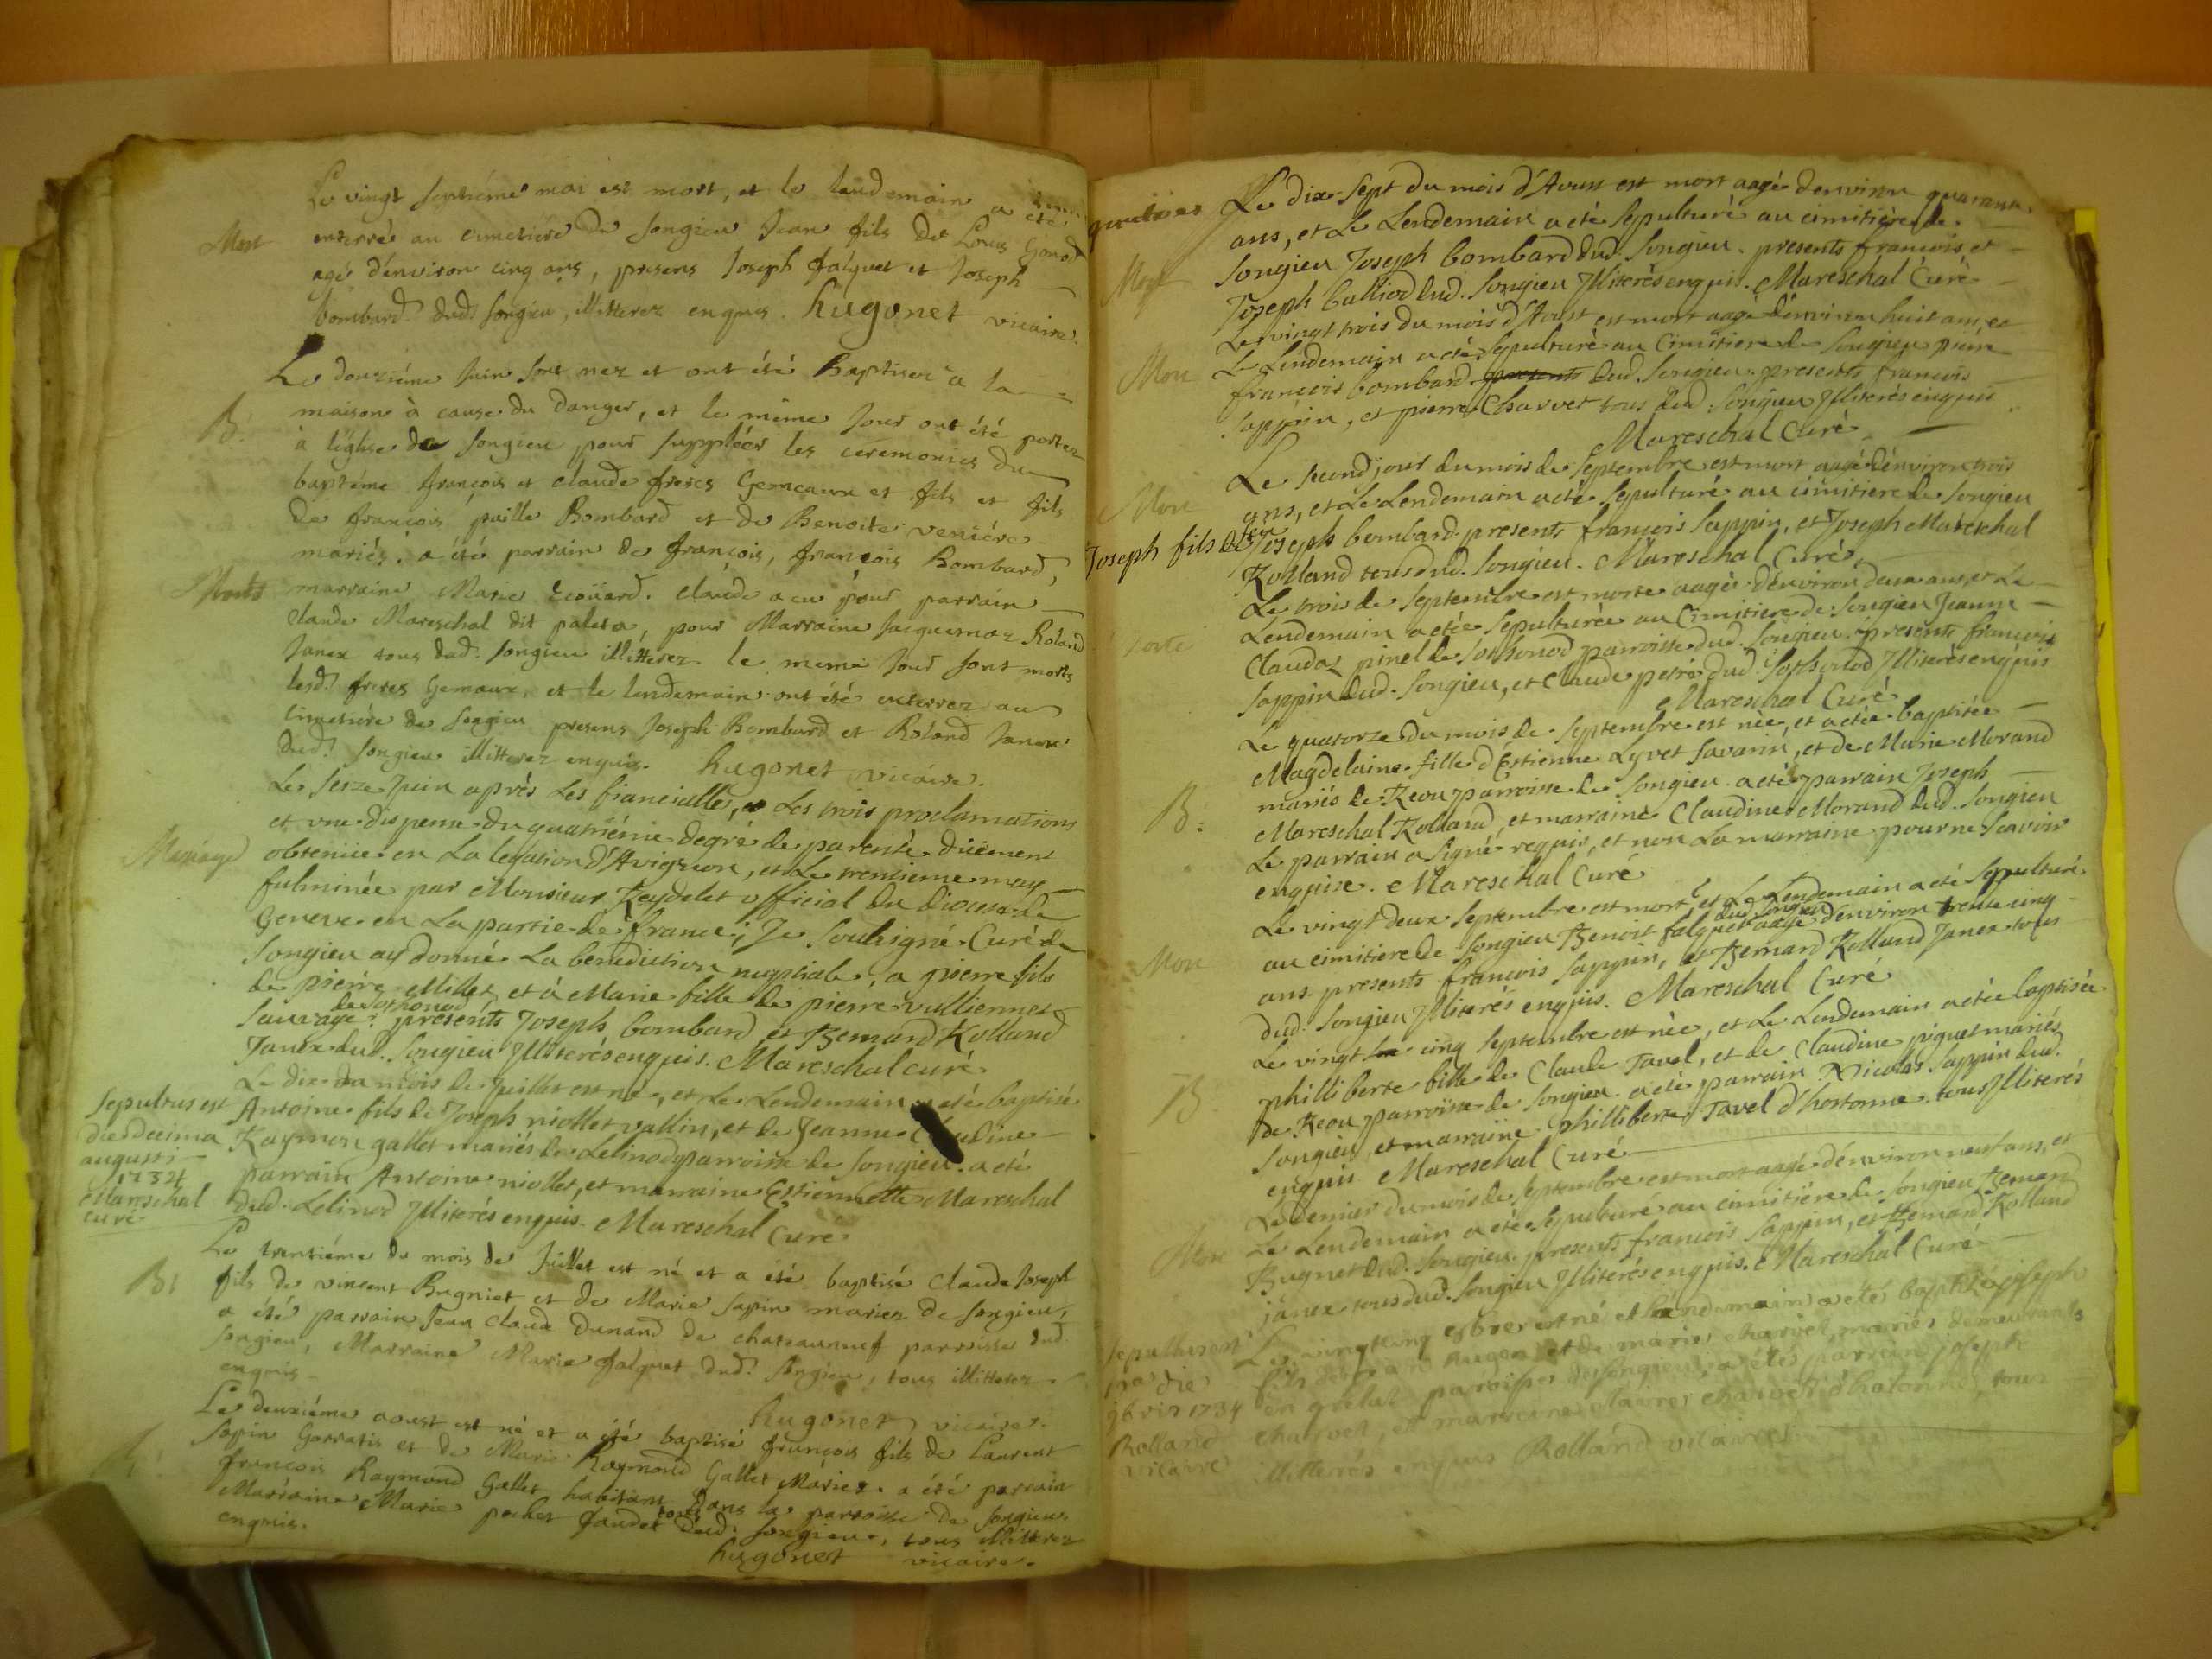 Le vingt septiéme mai est mort, et le lendemain a été
Mort
enterré au cimetière de Songieu Jean fils de Louis Gonod
agé d'environ cinq ans, presens Joseph falquet et Joseph
bombard dud. Songieu, illitterez enquis. hugonet vicaire.
Le douziéme Juin sont nez et ont été Baptisez a la
B.
maison à cause du danger, et le même jour ont été portez
à l'églse de Songieu pour suppléer les cérémonies du
baptéme françois et claude freres Gemeaux et fils et fils
de françois paille Bombard et de Benoite veniére
mariés. a été parrain de françois, françois Bombard,
Morts
marraine Marie Ecoüard. claude a eu pour parrain
claude Mareschal dit paleta, pour Marraine Jacquemaz Roland
Janex tous dud. Songieu illitterez. le meme jour sont morts
lesd. freres Gemaux, et le lendemain ont été enterrez au
cimetiére de Songieu presens Joseph Bombard et Roland Janex
dud. Songieu illitterez enquis. hugonet vicaire.
Le seize Juin aprés Les fiancialles, Les trois proclamations
et une dispense du quatriéme degré de parenté düement
Mariage
obtenüe en La legation d'Avignon, et Le trentieme may
fulminée par Monsieur Reydelet official du diocese de
Geneve en La partie de france; Je soubsigné Curé de
Songieu ay donné La benediction nuptiale, a pierre fils
de pierre Millet, et à Marie fille de pierre vulliermet
de sothonod
Sauvage. presents Joseph bombard et Bernard Rolland
Janex dud. Songieu Illiterés enquis. Mareschal curé.
Le dix du mois de Juillet est né, et Le Lendemain a eté baptisé
Sepultus est
die decima
augusti
1734
Mareschal
curé
Antoine fils de Joseph niollet vallin, et de Jeanne Claudine
Raymon gallet mariés de Lelinod parroisse de Songieu. a eté
parrain Antoine niollet, et marraine Estiennette Mareschal
dud. Lelinod Illiterés enquis. Mareschal Curé.
Le trentiéme du mois de Juillet est né et a été baptisé Claude Joseph
B.
fils de vincent Bugniet et de Marie Sapin mariez de Songieu,
a été parrain Jean Claude Dunand de chateauneuf parroisse dud
Songieu, Marraine Marie falquet dud. Songieu, tous illitterez
enquis.
hugonet vicaire.
Le deuxiéme aoust est né et a été baptisé françois fils de Laurent
Sapin Garratis et de Marie Raymond Gallet Mariez. a été parrain
françois Raymond Gallet habitant dans la parroisse de Songieu.
Marraine Marie pochet faudet dud. Songieu, tous illitterez
enquis.
hugonet vicaire.
Le dix-sept du mois d'Aoust est mort aagé d'environ quarante
ans, et Le Lendemain a eté sepulturé au cimitière de
Mort
Songieu Joseph bombard dud. Songieu. presents francois et
Joseph balliod dud. Songieu Illiterés enquis. Mareschal Curé
Le vingt trois du mois d'Aoust est mort aagé d'environ huit ans, et
Mort
Le Lendemain a eté sepulturé au Cimitiere de Songieu pierre
francois bombard presents dud. Songieu. presents francois
Sappin, et pierre Charvet tous dud. Songieu Illiterés enquis
Mareschal Curé
Le second jour du mois de Septembre est mort aagé d'environ trois
Mort
ans, et Le Lendemain a eté sepulturé au cimitiere de Songieu
Joseph fils de feu Joseph bombard. presents francois Sappin, et Joseph Mareschal
Rolland tous dud. Songieu. Mareschal Curé.
Le trois de Septembre est morte aagée d'environ deux ans, et Le
Morte
Lendemain a eteé sepulturée au Cimitiere de Songieu Jeanne
Clauda pinel de sothonod parroisse dud. Songieu. presents francois
Sappin dud. Songieu, et Claude perré dud. sothonod Illiterés enquis
Mareschal Curé
Le quatorze du mois de Septembre est née, et a etée baptisée
Magdelaine fille d'Estienne Lyvet Savarin, et de Marie Morand
mariés de Reou parroisse de Songieu. a eté parrain Joseph
B.
Mareschal Rolland, et marraine Claudine Morand dud. Songieu
Le parrain a signé requis, et non La marraine pour ne scavoir
enquise. Mareschal Curé
Le vingt deux Septembre est mort, et Le Lendemain a eté sepulturé
dud. Songieu
au cimitiere de Songieu Benoit falquet aagé d'environ trente cinq
Mort
ans. presents francois Sappin, et Bernard Rolland Janex tous
dud. Songieu Illiterés enquis. Mareschal Curé
Le vingt cinq Septembre est née, et Le Lendemain a etée baptisée
B
philliberte fille de Claude Tavel, et de Claudine piquet mariés
de Reou parroisse de Songieu. a eté parrain Nicolas Sappin dud.
Songieu, et marraine philliberte Tavel d'hostonne. tous Illiterés
enquis. Mareschal Curé
Le dernier du mois de Septembre est mort aagé d'environ neuf ans, et
Mort
Le Lendemain a eté sepulturé au cimitiere de Songieu Bernard
Bugnet dud. Songieu. presents francois Sappin, et Bernard Rolland
janex tous dud. Songieu Illiterés enquis. Mareschal Curé
Le vingt cinq est né et lendemain a été baptisé joseph
sepultus est
die
9bris 1734
Rolland
vicaire
fils de et de marie charvet mariés demeurants
en paroisse de songieu, a étés parrain joseph
charvet, et marraine claire charvet d'hotonne, tous
illitterés enquis Rolland vicaire